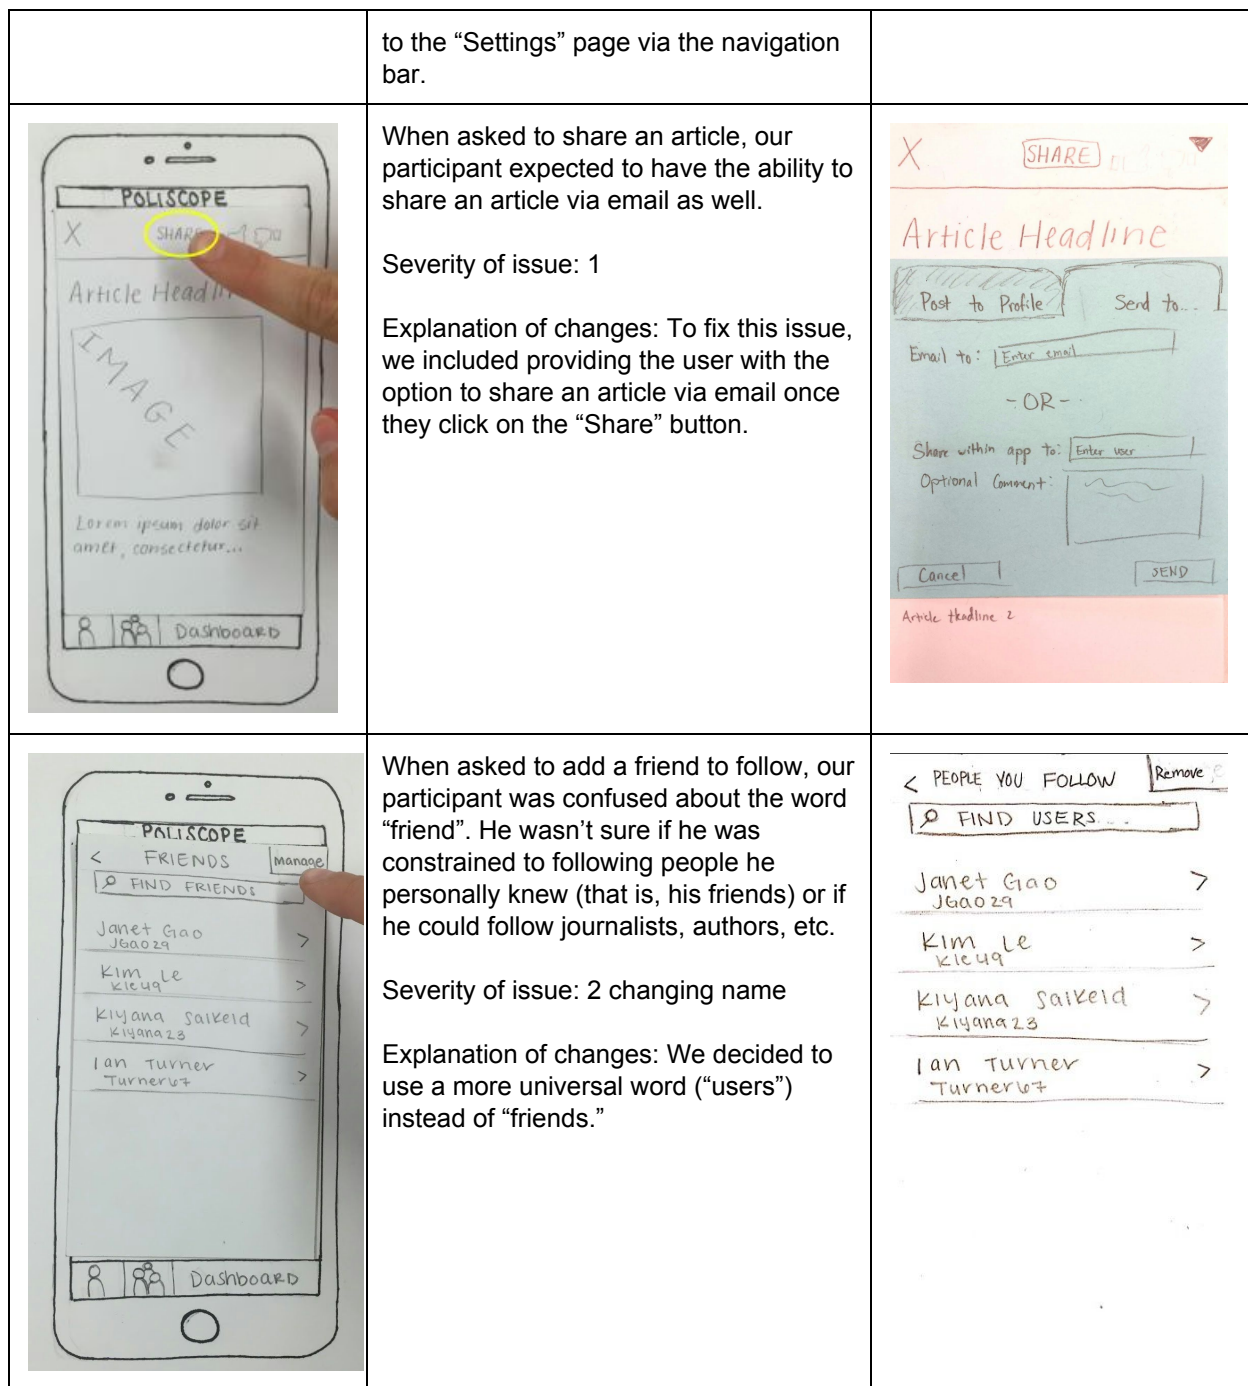 to the “Settings” page via the navigation
bar.
POLISCOPE
X SHARE
Article Headlin
IMAGE
Lorem ipsum dolor sit
amet, consectetur...
Dashboard
When asked to share an article, our
participant expected to have the ability to
share an article via email as well.
Severity of issue: 1
Explanation of changes: To fix this issue,
we included providing the user with the
option to share an article via email once
they click on the “Share” button.
X SHARE
Article Headline
Post to Profile Send to...
Email to: Enter email
- OR -
Share within app to: Enter user
Optional Comment:
Cancel SEND
Article Headline 2
POLISCOPE
< FRIENDS Manage
FIND FRIENDS
Janet Gao >
JGao29
Kim Le >
Kle49
Kiyana Saikeld >
Kiyana23
Ian Turner >
Turner67
Dashboard
When asked to add a friend to follow, our
participant was confused about the word
“friend”. He wasn’t sure if he was
constrained to following people he
personally knew (that is, his friends) or if
he could follow journalists, authors, etc.
Severity of issue: 2 changing name
Explanation of changes: We decided to
use a more universal word (“users”)
instead of “friends.”
< PEOPLE YOU FOLLOW Remove
FIND USERS...
Janet Gao >
JGao29
Kim Le >
Kle49
Kiyana Saikeld >
Kiyana23
Ian Turner >
Turner67